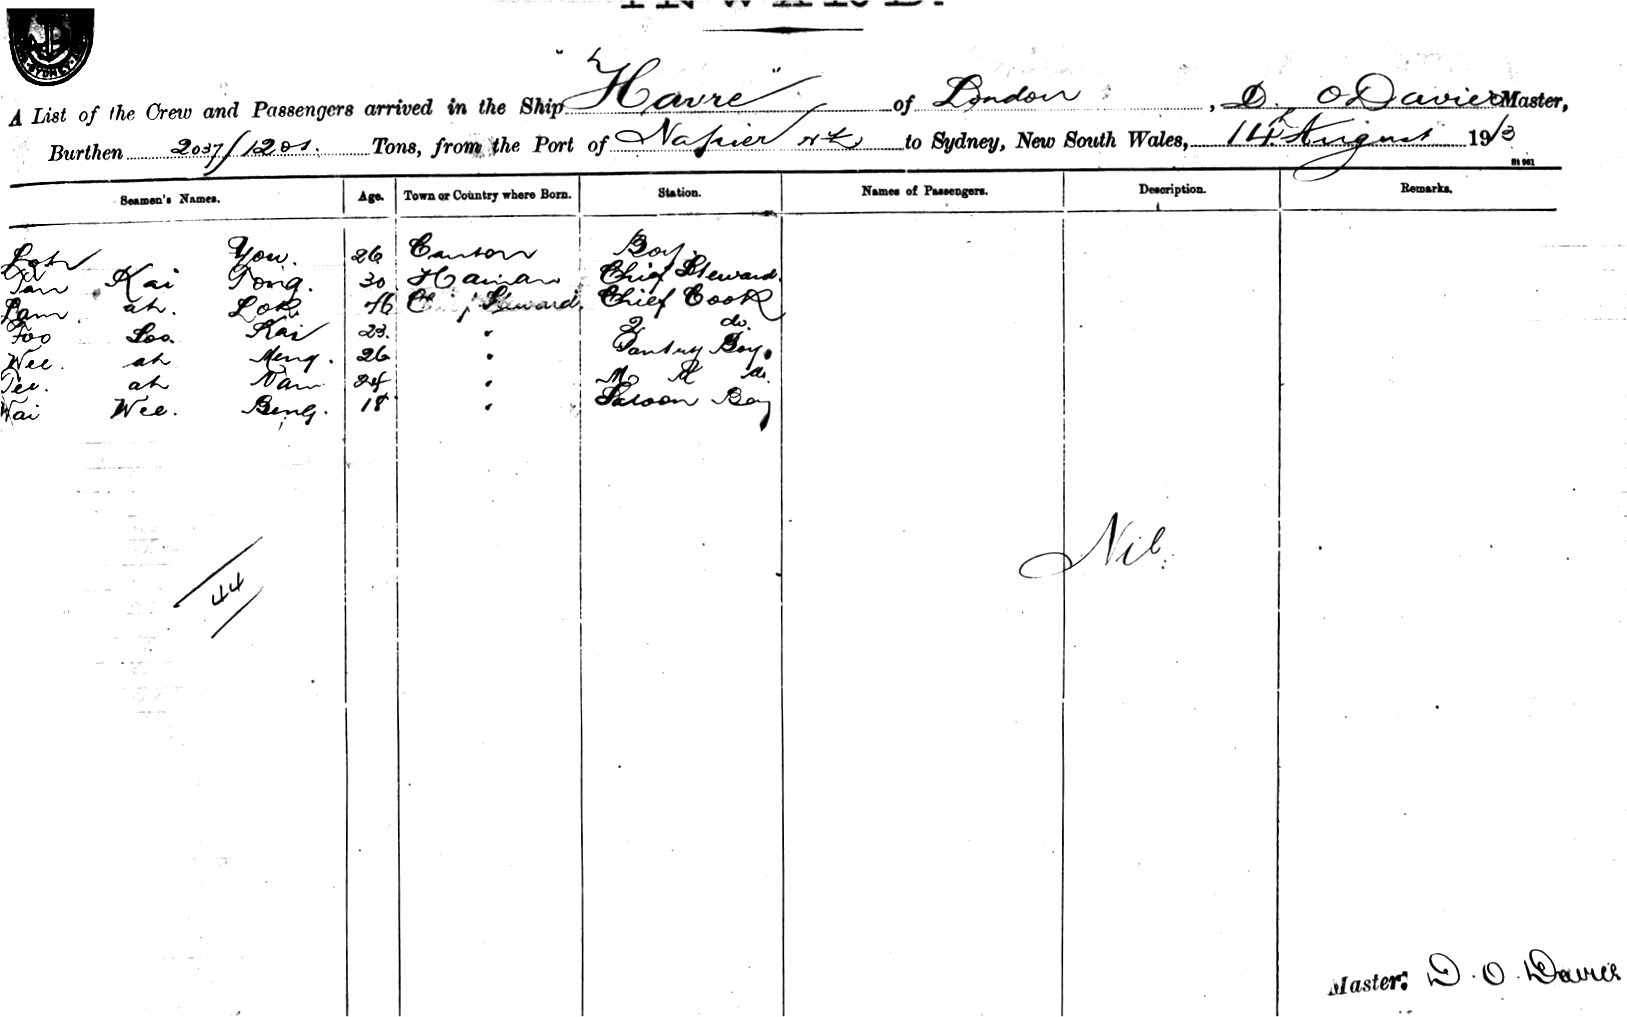 INWARD.
SYDNEY
A List of the Crew and Passengers arrived in the Ship "Havre" of London, D. O Davies Master,
Burthen 2037/1201. Tons, from the Port of Napier NZ to Sydney, New South Wales, 14 August 1913
St 961
Seamen's Names. Age. Town or Country where Born. Station. Names of Passengers. Description. Remarks.
Loh You. 26 Canton Boy.
Tan Kai Tong. 30 Hainan Chief Steward.
Lam ah. Lok 46 Steward. Chief Cook
Foo Loo. Kai 23. " 2 do.
Wee. ah Meng. 26 " Pantry Boy.
Tee. ah Nam 24 " M R do.
Wai Wee. Beng. 18 " Saloon Boy
Nil.
44
Master: D. O. Davies